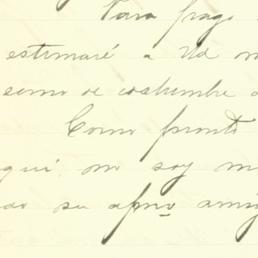 Para pago
estimaré a Ud
como de costumbre
Como pronto
aquí no soy m
do su afmo. amig